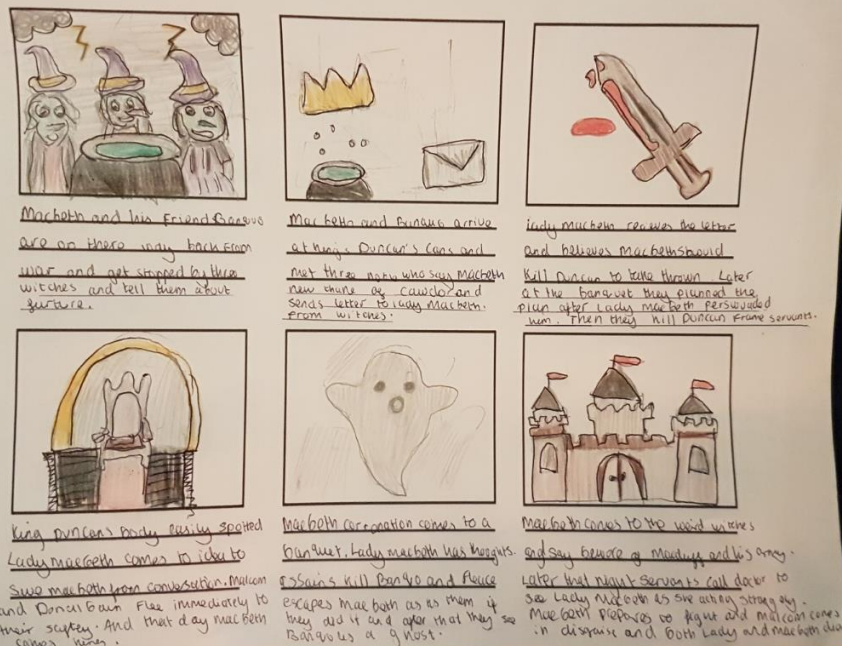 Macbeth and his Friend Banquo
are on there way back from
war and get stopped by three
witches and tell them about
furture.
Macbeth and Banquo arrive
at king Duncan's and
met three who says Macbeth
new thane of Cawdor and
sends letter to lady Macbeth.
from witches.
lady Macbeth receives the letter
and believes Macbeth should
kill Duncan to take thrown Later
at the banquet they planned the
plan after Lady Macbeth persuaded
him. Then they kill Duncan frame servants.
King Duncans Body easily spotted
Lady macbeth comes to idea to
save macbeth from conversation. Malcom
and Flee immediately to
their saftey. And that day macbeth
comes
Macbeth corronation comes to a
banquet. Lady macbeth has thoughts.
kill Banquo and Fleuce
escapes macbeth as as them if
they did it and after that they see
Banquos a ghost.
Macbeth comes to the weird witches
and say beware of Macduff and his army.
Later that night servants call doctor to
see Lady Macbeth as she acting strangely.
Macbeth prepares to fight and malcom comes
in disguise and both Lady and macbeth